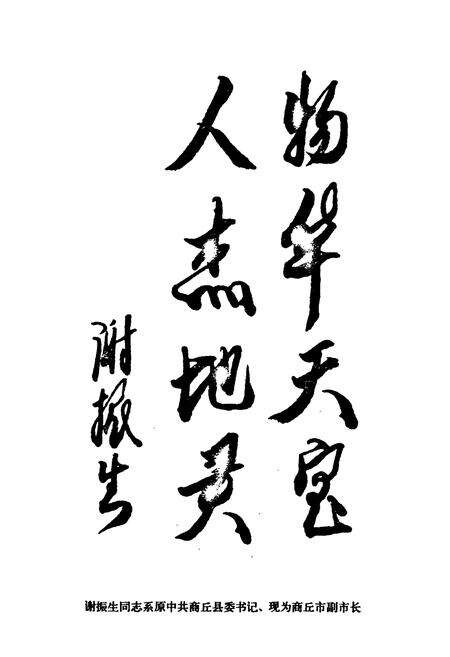 物华天宝
人杰地灵
谢振生
谢振生同志系原中共商丘县委书记、现为商丘市副市长